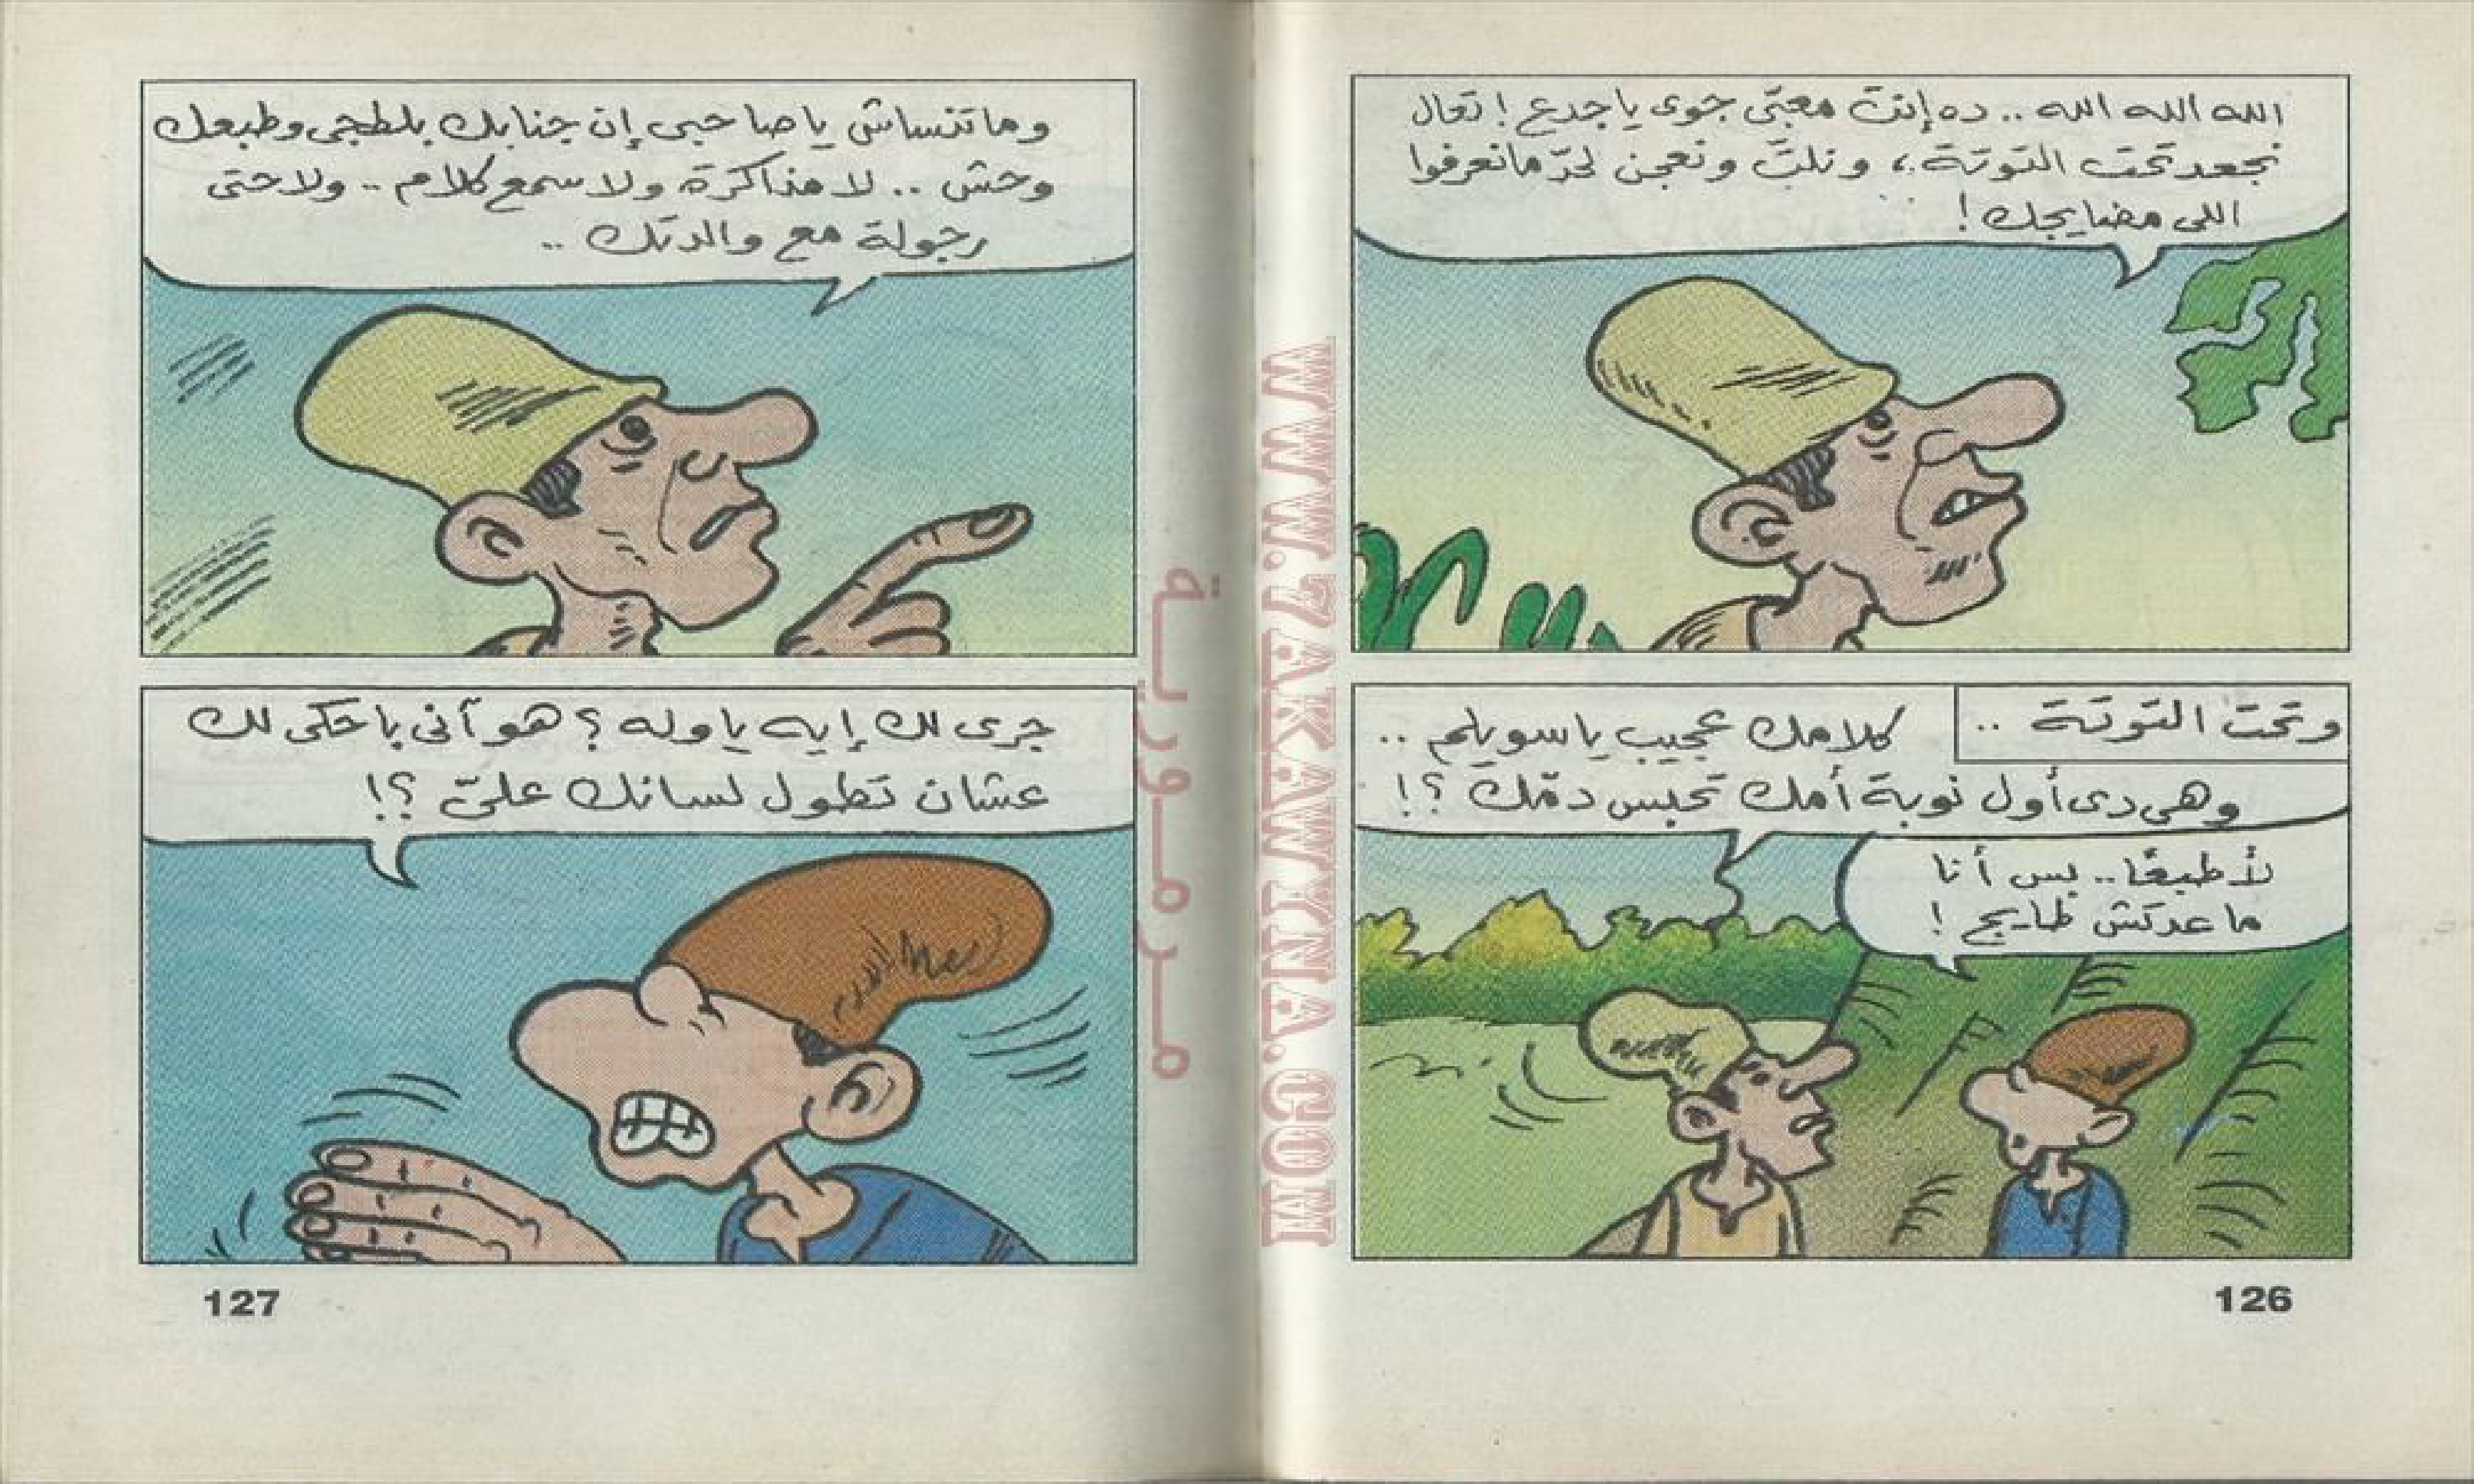 الله الله الله .. ده إنت معبّى جوى ياجدع ! تعال
نجعد تحت التوتة ، ونلتّ ونعجن لحدّ مانعرفوا
اللى مضايجك !
وتحت التوتة ..
كلامك عجيب ياسويلم ..
وهى دى أول نوبة أمك تحبس دمّك ؟!
لأ طبعًا .. بس أنا
ما عدتش طايج !
126
وماتنساش ياصاحبى إن جنابك بلطجى وطبعك
وحش .. لا مذاكرة ولا سمع كلام .. ولا حتى
رجولة مع والدتك ..
جرى لك إيه ياوله ؟ هو آنى باحكى لك
عشان تطول لسانك علىّ ؟!
127
مرمورية
WWW.7AKAWYNA.COM